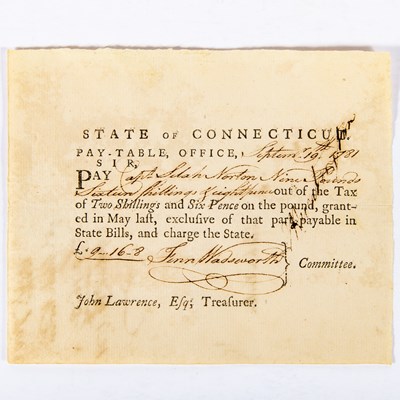 STATE OF CONNECTICUT.
PAY-TABLE, OFFICE, Septemr 19th 1781
SIR,
PAY Capt Elish Norton Nine Pounds
Sixteen Shillings & eight pence out of the Tax
of Two Shillings and Six Pence on the pound, grant-
ed in May last, exclusive of that part payable in
State Bills, and charge the State.
£ 9-16-8 Fenn Wadsworth } Committee.
John Lawrence, Esq; Treasurer.